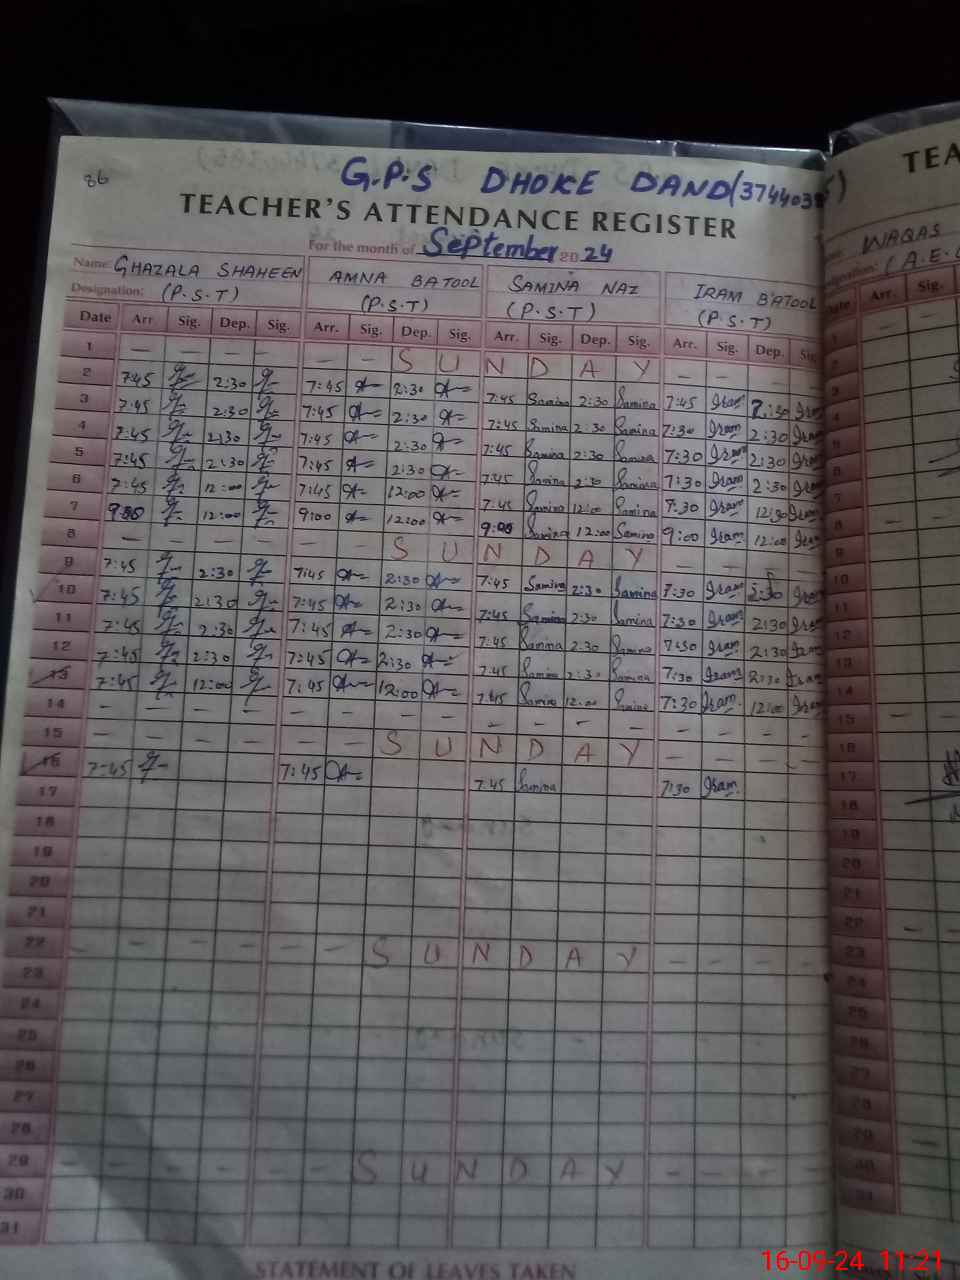 86
G.P.S DHOKE DAND (
TEACHER'S ATTENDANCE REGISTER
For the month of September 2024
Name: GHAZALA SHAHEEN AMNA BATOOL SAMINA NAZ IRAM BATOOL
Designation: (P.S.T) (P.S.T) (P.S.T) (P.S.T)
Date Arr. Sig. Dep. Sig. Arr. Sig. Dep. Sig. Arr. Sig. Dep. Sig. Arr. Sig. Dep.
1 — — — — — — S U N D A Y — — —
2 7:45 2:30 7:45 2:30 7:45 Samina 2:30 Samina 7:45 Iram 2:30 Iram
3 7:45 2:30 7:45 2:30 7:45 Samina 2:30 Samina 7:30 Iram 2:30 Iram
4 7:45 2:30 7:45 2:30 7:45 Samina 2:30 Samina 7:30 Iram 2:30 Iram
5 7:45 2:30 7:45 2:30 7:45 Samina 2:30 Samina 7:30 Iram 2:30 Iram
6 7:45 12:00 7:45 12:00 7:45 Samina 12:00 Samina 7:30 Iram 12:30 Iram
7 9:00 12:00 9:00 12:00 9:00 Samina 12:00 Samina 9:00 Iram 12:00 Iram
8 — — — — — — S U N D A Y — — — —
9 7:45 2:30 7:45 2:30 7:45 Samina 2:30 Samina 7:30 Iram 2:30 Iram
10 7:45 2:30 7:45 2:30 7:45 Samina 2:30 Samina 7:30 Iram 2:30 Iram
11 7:45 2:30 7:45 2:30 7:45 Samina 2:30 Samina 7:30 Iram 2:30 Iram
12 7:45 2:30 7:45 2:30 7:45 Samina 2:30 Samina 7:30 Iram 2:30 Iram
13 7:45 12:00 7:45 12:00 7:45 Samina 12:00 Samina 7:30 Iram 12:00 Iram
14 — — — — — — — — — — — — — — — —
15 — — — — — — S U N D A Y — — — —
16 7:45 7:45 7:45 Samina 7:30 Iram
17
18
19
20
21
22 — — — — — — S U N D A Y — — — —
23
24
25
26
27
28
29 — — — — — — S U N D A Y — — — —
30
31
STATEMENT OF LEAVES TAKEN
WAQAS
(A.E.
Arr. Sig.
16-09-24 11:21